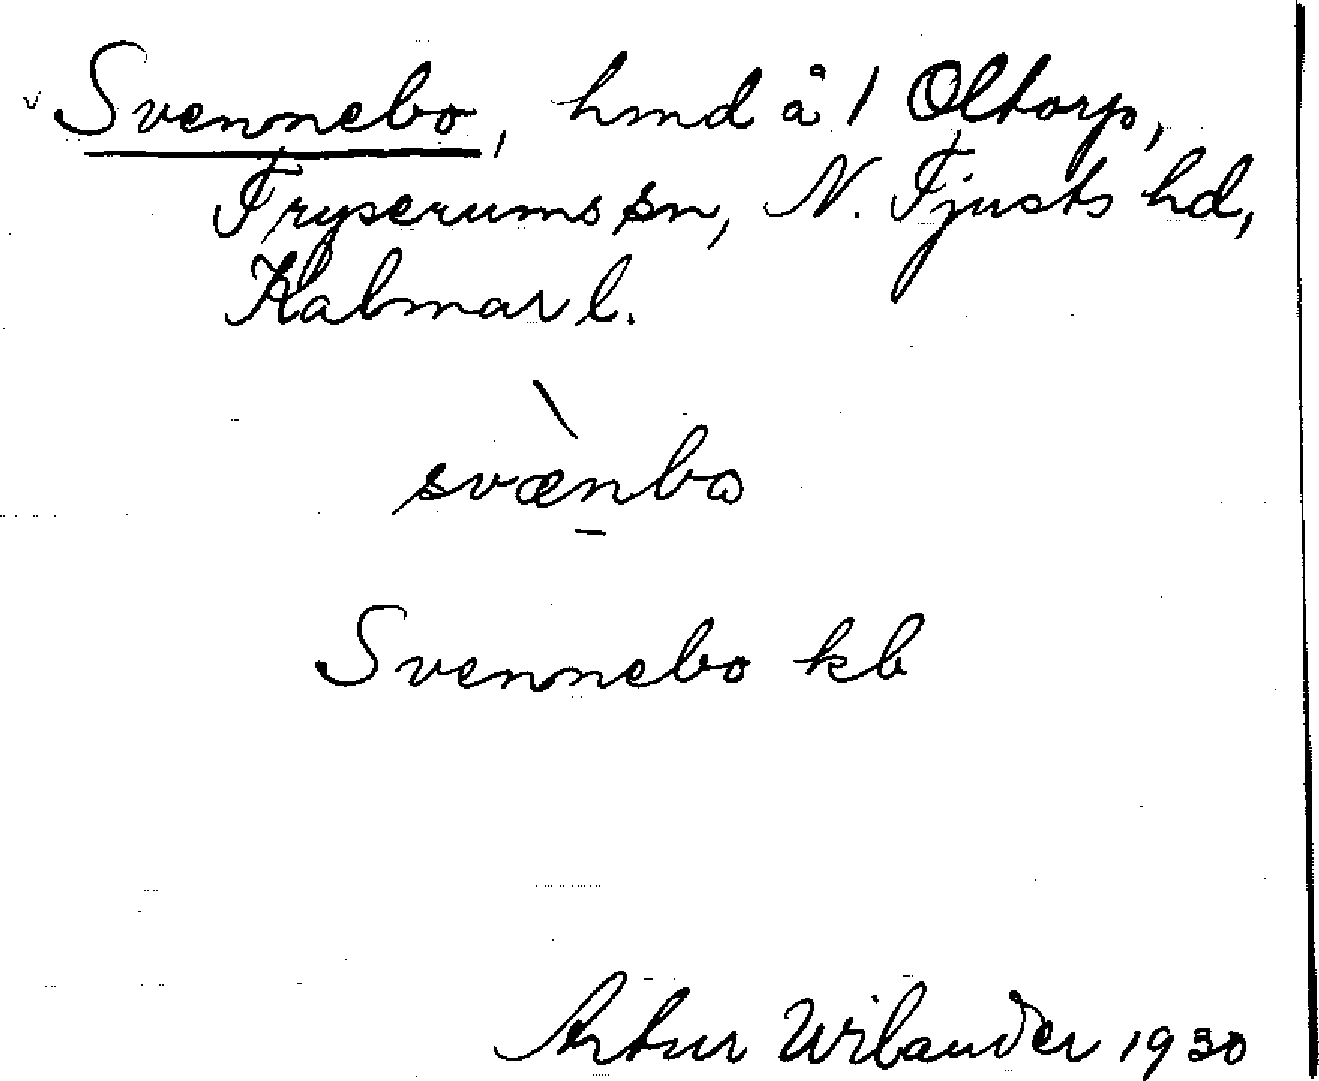 Svennebo, hmd å 1 Oltorp,
Tryserums sn, N. Tjusts hd,
Kalmar l.
svænbo
Svennebo kb
Artur Wilander 1930